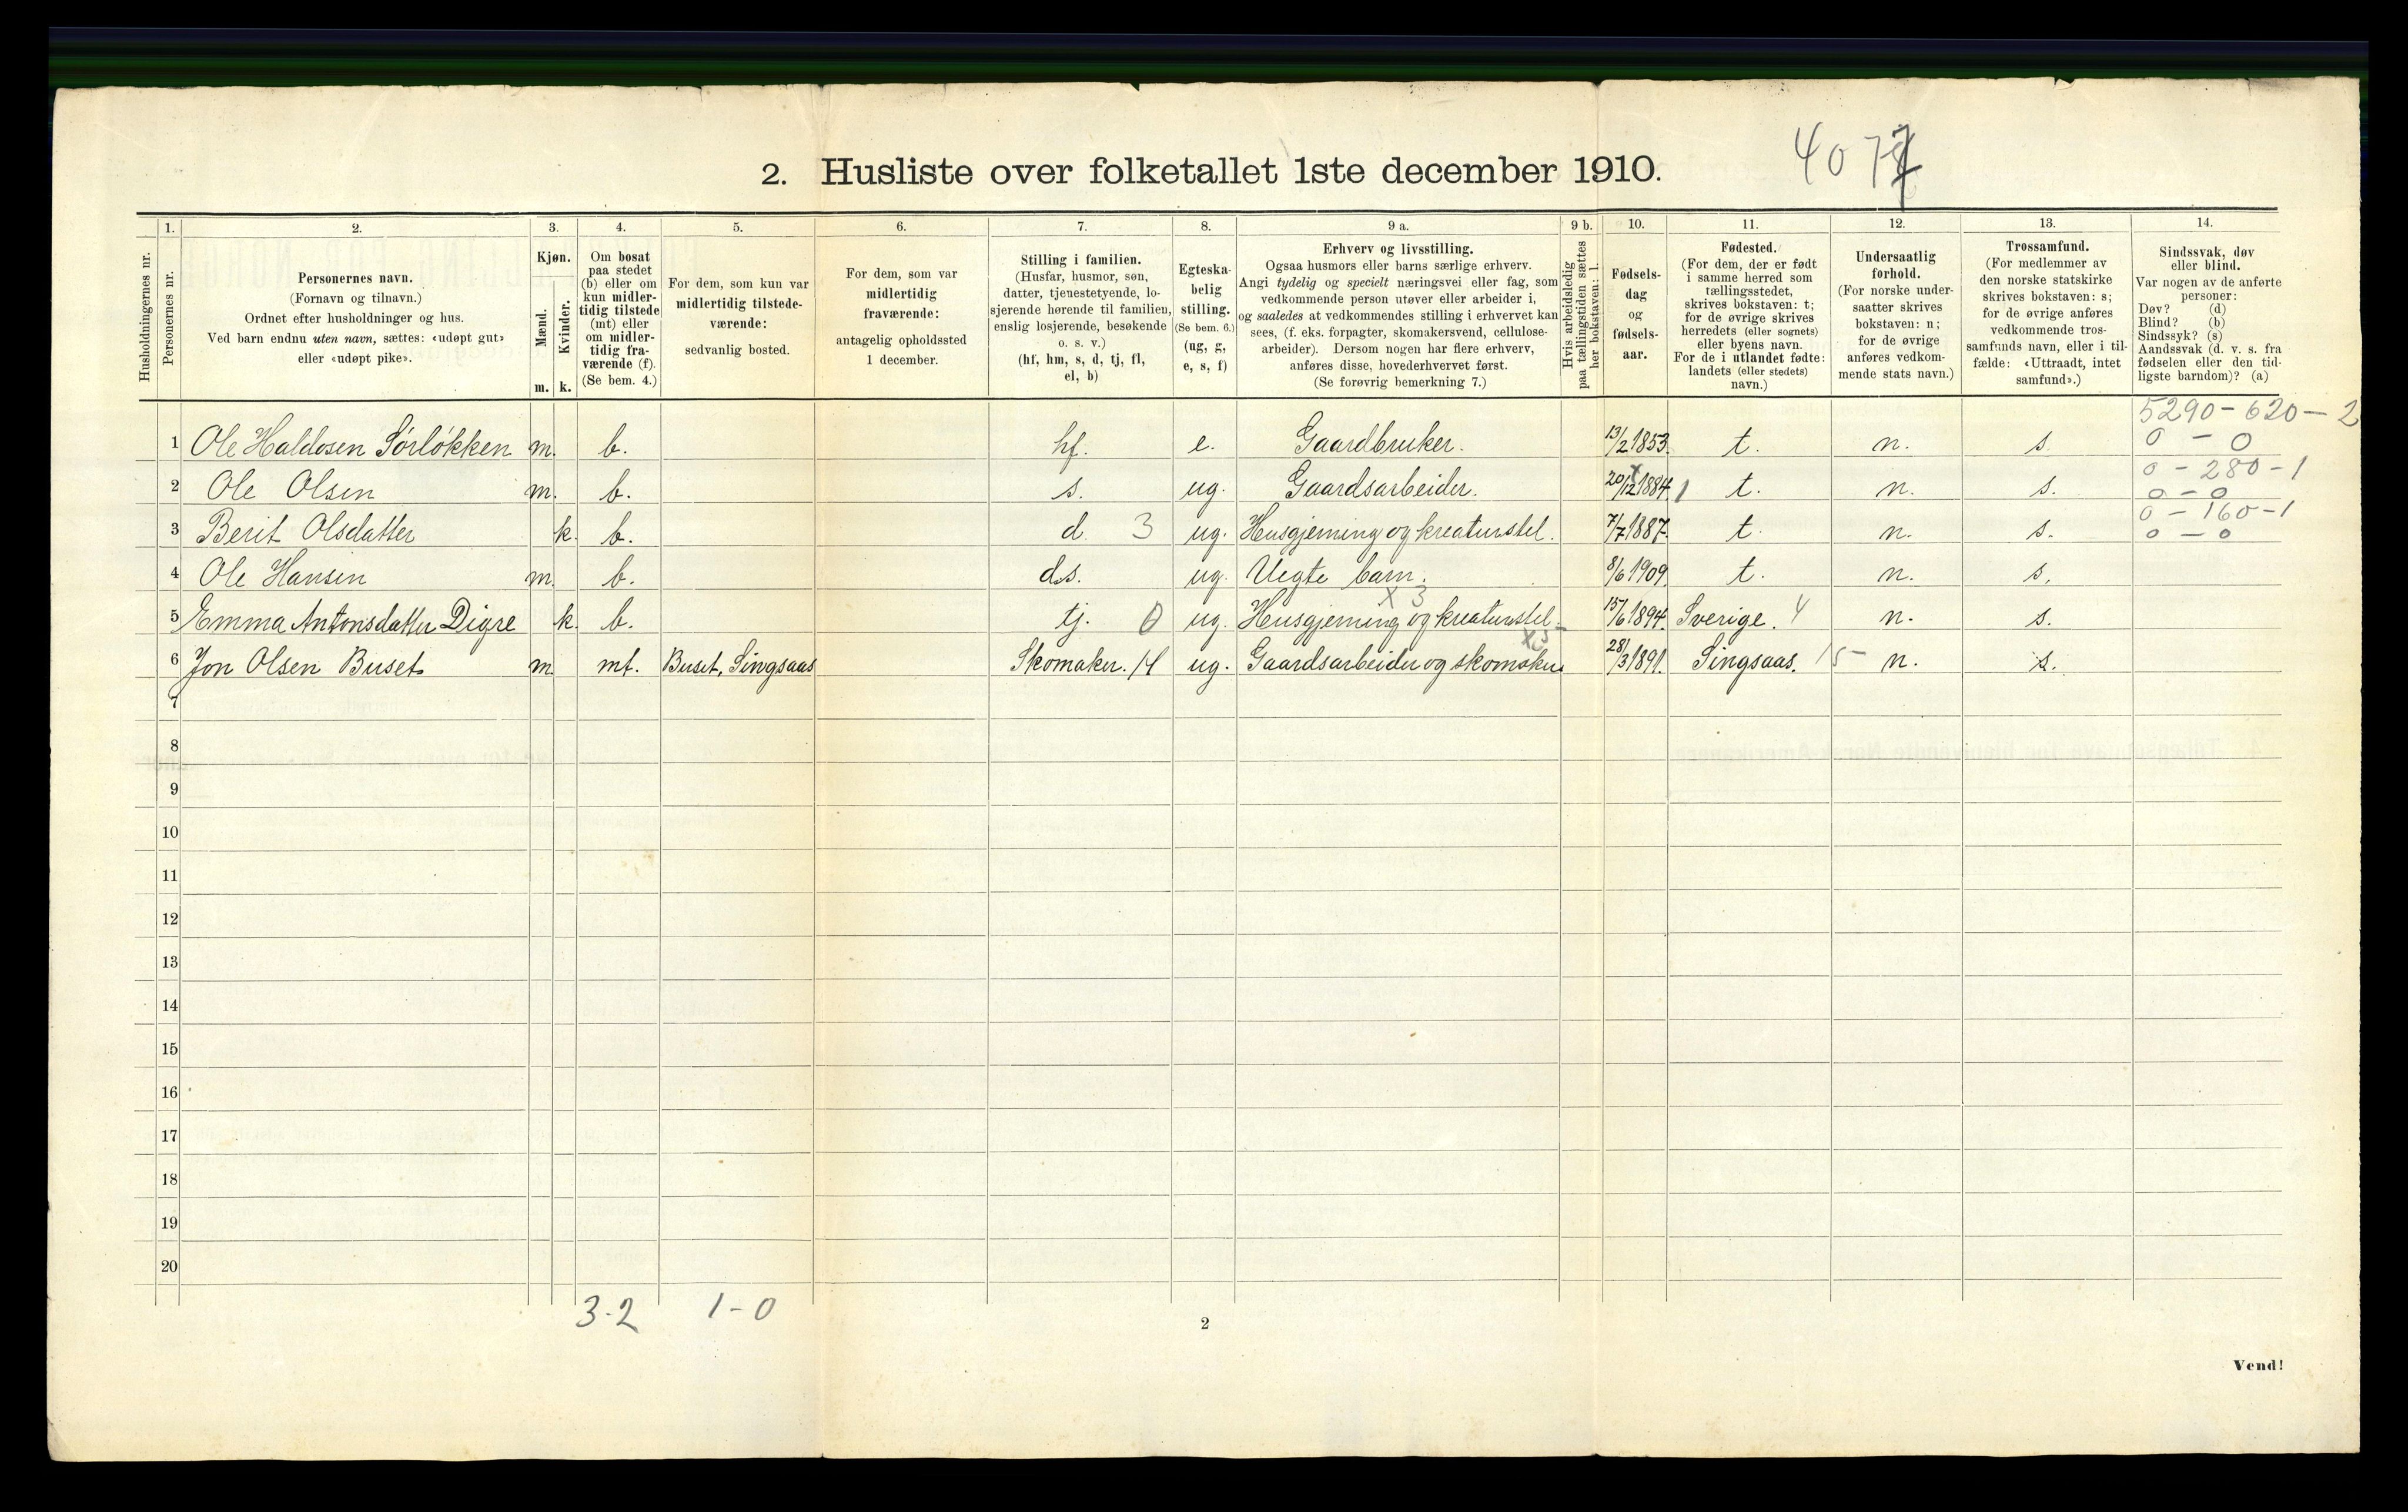 2. Husliste over folketallet 1ste december 1910.
Husholdningernes nr.
1.
Personernes nr.
2.
Personernes navn.
(Fornavn og tilnavn.)
Ordnet efter husholdninger og hus.
Ved barn endnu uten navn, sættes: «udøpt gut»
eller «udøpt pike».
3.
Kjøn.
Mænd.
Kvinder.
m. k.
4.
Om bosat
paa stedet
(b) eller om
kun midler-
tidig tilstede
(mt) eller
om midler-
tidig fra-
værende (f).
(Se bem. 4.)
5.
For dem, som kun var
midlertidig tilstede-
værende:
sedvanlig bosted.
6.
For dem, som var
midlertidig
fraværende:
antagelig opholdssted
1 december.
7.
Stilling i familien.
(Husfar, husmor, søn,
datter, tjenestetyende, lo-
sjerende hørende til familien,
enslig losjerende, besøkende
o. s. v.)
(hf, hm, s, d, tj, fl,
el, b)
8.
Egteska-
belig
stilling.
(Se bem. 6.)
(ug, g,
e, s, f)
9 a.
Erhverv og livsstilling.
Ogsaa husmors eller barns særlige erhverv.
Angi tydelig og specielt næringsvei eller fag, som
vedkommende person utøver eller arbeider i,
og saaledes at vedkommendes stilling i erhvervet kan
sees, (f. eks. forpagter, skomakersvend, cellulose-
arbeider). Dersom nogen har flere erhverv,
anføres disse, hovederhvervet først.
(Se forøvrig bemerkning 7.)
9 b.
Hvis arbeidsledig
paa tællingstiden sættes
her bokstaven: l.
10.
Fødsels-
dag
og
fødsels-
aar.
11.
Fødested.
(For dem, der er født
i samme herred som
tællingsstedet,
skrives bokstaven: t;
for de øvrige skrives
herredets (eller sognets)
eller byens navn.
For de i utlandet fødte:
landets (eller stedets)
navn.)
12.
Undersaatlig
forhold.
(For norske under-
saatter skrives
bokstaven: n;
for de øvrige
anføres vedkom-
mende stats navn.)
13.
Trossamfund.
(For medlemmer av
den norske statskirke
skrives bokstaven: s;
for de øvrige anføres
vedkommende tros-
samfunds navn, eller i til-
fælde: «Uttraadt, intet
samfund».)
14.
Sindssvak, døv
eller blind.
Var nogen av de anførte
personer:
Døv? (d)
Blind? (b)
Sindssyk? (s)
Aandssvak (d. v. s. fra
fødselen eller den tid-
ligste barndom)? (a)
5290-620-2
1 Ole Haldosen Sørløkken m. b. hf. e. Gaardbruker. 13/2 1853. t. n. s. 0 - 0
0 - 280-1
2 Ole Olsen m. b. s. ug. Gaardsarbeider. 20/12 1884. 1 t. n. s. 0 - 0
0 - 160-1
3 Berit Olsdatter k. b. d. 3 ug. Husgjerning og kreaturstel. 7/7 1887. t. n. s. 0 - 0
4 Ole Hansen m. b. d.s. ug. Uegte barn. 8/6 1909. t. n. s.
x 3
5 Emma Antonsdatter Digre k. b. tj. 0 ug. Husgjerning og kreaturstel. 15/6 1894. Sverige. 4 n. s.
6 Jon Olsen Buset m. mt. Buset, Singsaas Skomaker. 14 ug. Gaardsarbeider og skomaker 28/3 1891. Singsaas. 15 n. s.
7
8
9
10
11
12
13
14
15
16
17
18
19
20
3-2 1-0
2
Vend!